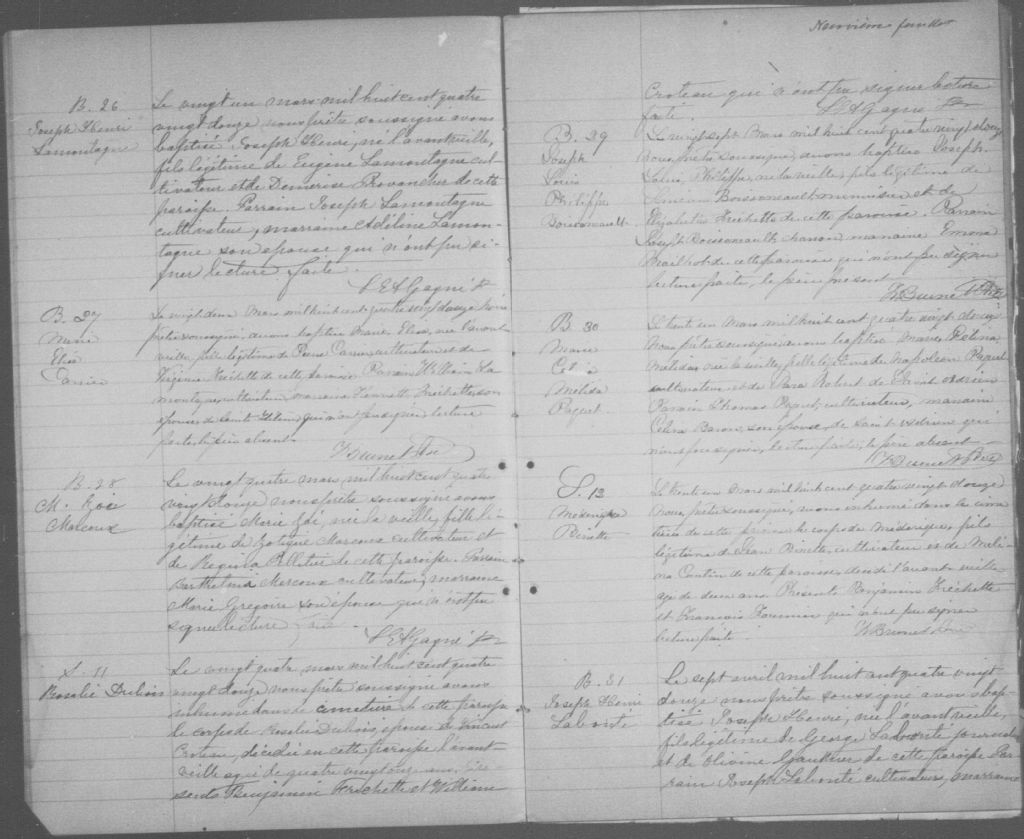 B. 26
Joseph Henri
Lamontagne
Le vingt un mars mil huit cent quatre
vingt douze nous prêtre soussigné avons
baptisé Joseph Henri, né l'avant veille,
fils légitime de Eugène Lamontagne cul-
tivateur et de Demerise Provancher de cette
paroisse. Parrain Joseph Lamontagne
cultivateur, marraine Adéline Lamon-
tagne son epouse qui n'ont pu si-
gner lecture faite.
Gagné ptre
B. 27
Marie
Eliza
Carrier
Le vingt deux Mars mil huit cent quatre vingt douze Nous
prêtre soussigné, avons baptisé Marie Eliza, née l'avant
veille, fille légitime de Pierre Carrier, cultivateur et de
Virginie Fréchette de cette paroisse. Parrain William La
montagne cultivateur, marraine Fréchette son
épouse de Saint qui n'ont pu signer, lecture
faite, le père absent.
Brunet Ptre
B. 28
M. Zoé
Marcoux
Le vingt quatre mars mil huit cent quatre
vingt douze nous prêtre soussigné avons
baptisé Marie Zoé, née la veille, fille lé-
gitime de Zotique Marcoux cultivateur et
de Regina Pelletier de cette paroisse. Parrain
Barthelmi Marcoux cultivateur, marraine
Marie Gregoire son épouse qui n'ont pu
signer lecture faite.
Gagné ptre
S. 11
Rosalie Dubois
Le vingt quatre mars mil huit cent quatre
vingt douze nous prêtre soussigné avons
inhumé dans le cimetière de cette paroisse
le corps de Rosalie Dubois, épouse de Vincent
Croteau, décédée en cette paroisse l'avant
veille agée de quatre vingt onze ans. Pré-
sents Benjamin Frechette et William
Neuvième feuillet
Croteau qui n'ont pu signer lecture
faite.
Gagné ptre
B. 29
Joseph
Louis
Philippe
Boissoneault
Le vingt sept Mars mil huit cent quatre vingt douze
Nous, prêtre soussigné, avons baptisé Joseph
Louis, Philippe, né la veille, fils légitime de
Simeon Boissoneault, menuisier et de
Elizabeth Fréchette de cette paroisse. Parrain
Joseph Boissoneault charron, marraine Emma
Mailhot de cette paroisse qui n'ont pu signer
lecture faite, le père présent
Brunet Ptre
B. 30
Marie
Célina
Mélisa
Paquet
Le trente un Mars mil huit cent quatre vingt douze
Nous prêtre soussigné avons baptisé Marie, Célina,
Mélisa née la veille, fille légitime de Napoléon Paquet
cultivateur et de Robert de Saint Adrien
Parrain Thomas Paquet, cultivateur, marraine
Célina Baron, son épouse, de Saint Adrien qui
n'ont pu signer, lecture faite, le père absent
Brunet Ptre
S. 12
Médérique
Binette
Le trente un Mars mil huit cent quatre vingt douze
Nous, prêtre soussigné, avons inhumé dans le cime
tière de cette paroisse le corps de Médérique, fils
légitime de Jean Binette, cultivateur et de Méli
na Cantin de cette paroisse, décédé l'avant veille
agé de deux ans. Présents Benjamin Fréchette
et François Fournier qui n'ont pu signer
lecture faite.
Brunet Ptre
B. 31
Joseph Henri
Labonté
Le sept avril mil huit cent quatre vingt
douze nous prêtre soussigné avons bap-
tisé Joseph Henri, né l'avant veille,
fils légitime de George Labonté journalier
et de Olivine Gauthier de cette paroisse Par-
rain Joseph Labonté cultivateur, marraine